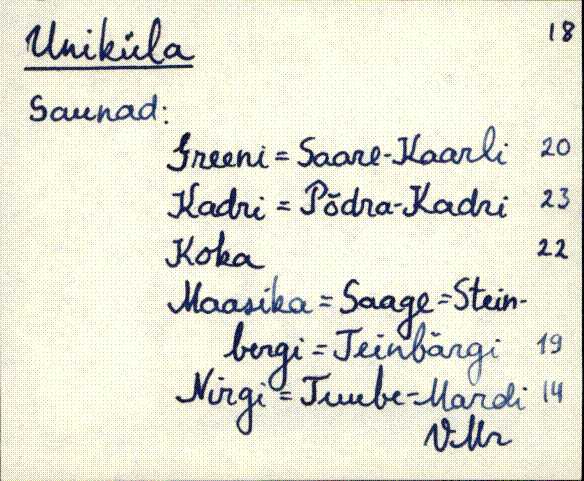 Uniküla 18
Saunad:
Greeni = Saare-Kaarli 20
Kadri = Põdra-Kadri 23
Koka 22
Maasika = Saage = Stein-
bergi = Teinbärgi 19
Nirgi = Tuube-Mardi 14
VMr